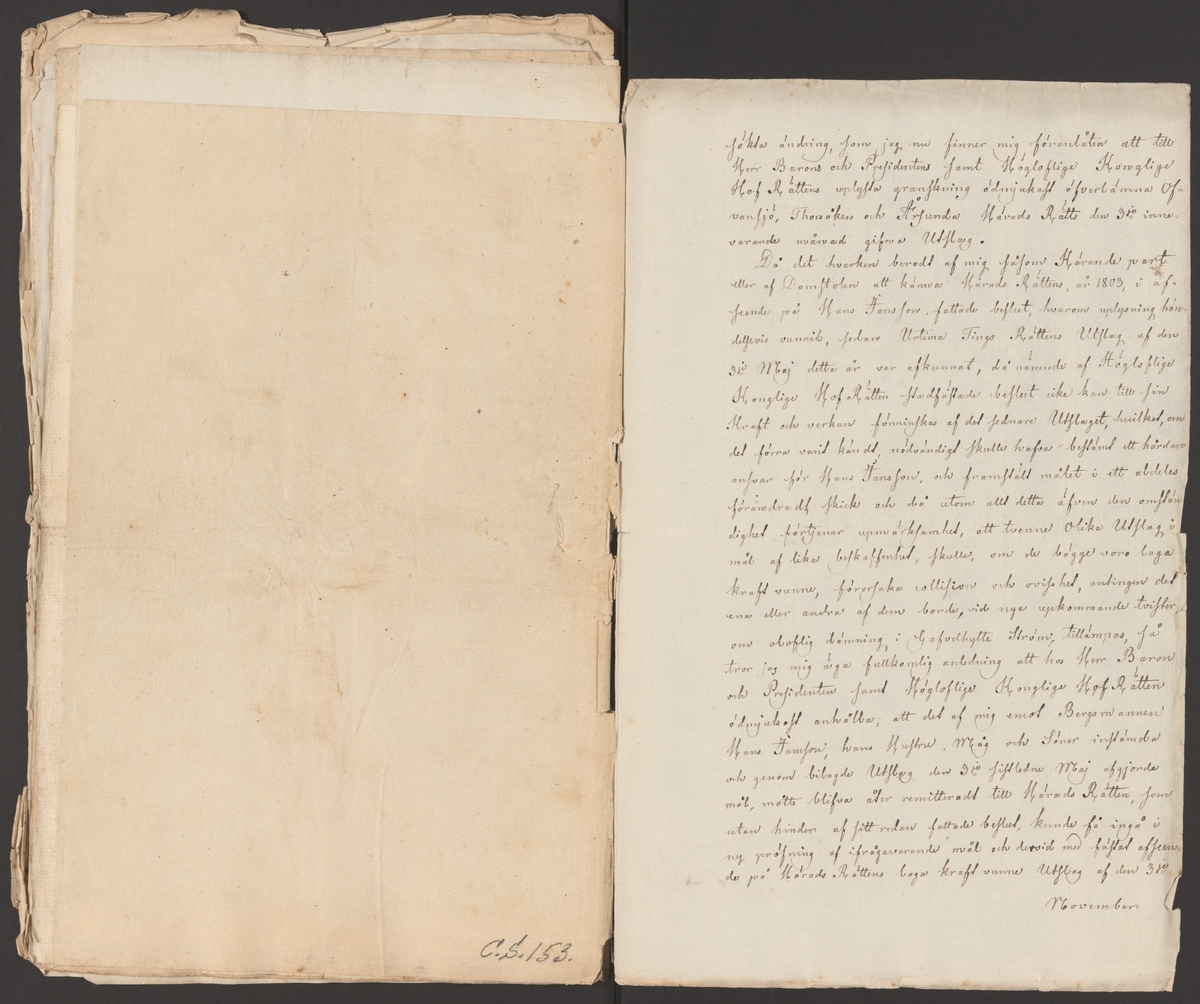 C.S. 153.
sökta ändring, som jag nu finner mig föranlåten att till
Herr Barons och Presidentens samt Högloflige Konglige
Hof Rättens uplysta granskning ödmjukast öfverlämna Of-
vansjö, Thorsåkers och Årsunda Härads Rätts den 31 inne-
varande månad gifva Utslag.
Då det hvarken berodt af mig såsom Kärande part
eller af Domstolen att känna Härads Rättens, år 1803, i af-
seende på Hans Jansson, fattade beslut, hvarom uplysning hän-
delsevis vunnits, sedan Urtima Tings Rättens Utslag af den
31 Maj detta år var afkunnat, då nämnde af Högloflige
Konglige Hof Rätten stadfästade beslut icke kan till sin
Kraft och verkan förminskas af det sednare Utslaget, hvilket, om
det förra varit kändt, nödvändigt skulle hafva bestämt ett hårdare
ansvar för Hans Jansson, och framstält målet i ett aldeles
förändradt skick och då utom allt detta äfven den omstän
dighet förtjenar upmärksamhet, att tvenne olika Utslag i
mål af lika beskaffenhet, skulle, om de bägge voro laga
kraft vunne, förorsaka collision och ovisshet, antingen det
ena eller andra af dem borde, vid nya upkommande tvister,
om oloflig dämning i Gafvelhytte Ström, tillämpas, så
tror jag mig äga fullkomlig anledning att hos Herr Baron
och Presidenten samt Högloflige Konglige Hof Rätten
ödmjukast anhålla, att det af mig emot Bergsmannen
Hans Jansson, hans Hustru, Måg och Söner instämda
och genom bilagde Utslag den 31 sistledne Maj afgjorde
mål, måtte blifva åter remitteradt till Härads Rätten, som
utan hinder af sitt redan fattade beslut, kunde få ingå i
ny pröfning af ifrågavarande mål och dervid med fästat afseen-
de på Härads Rättens laga kraft vunne Utslag af den 31
November